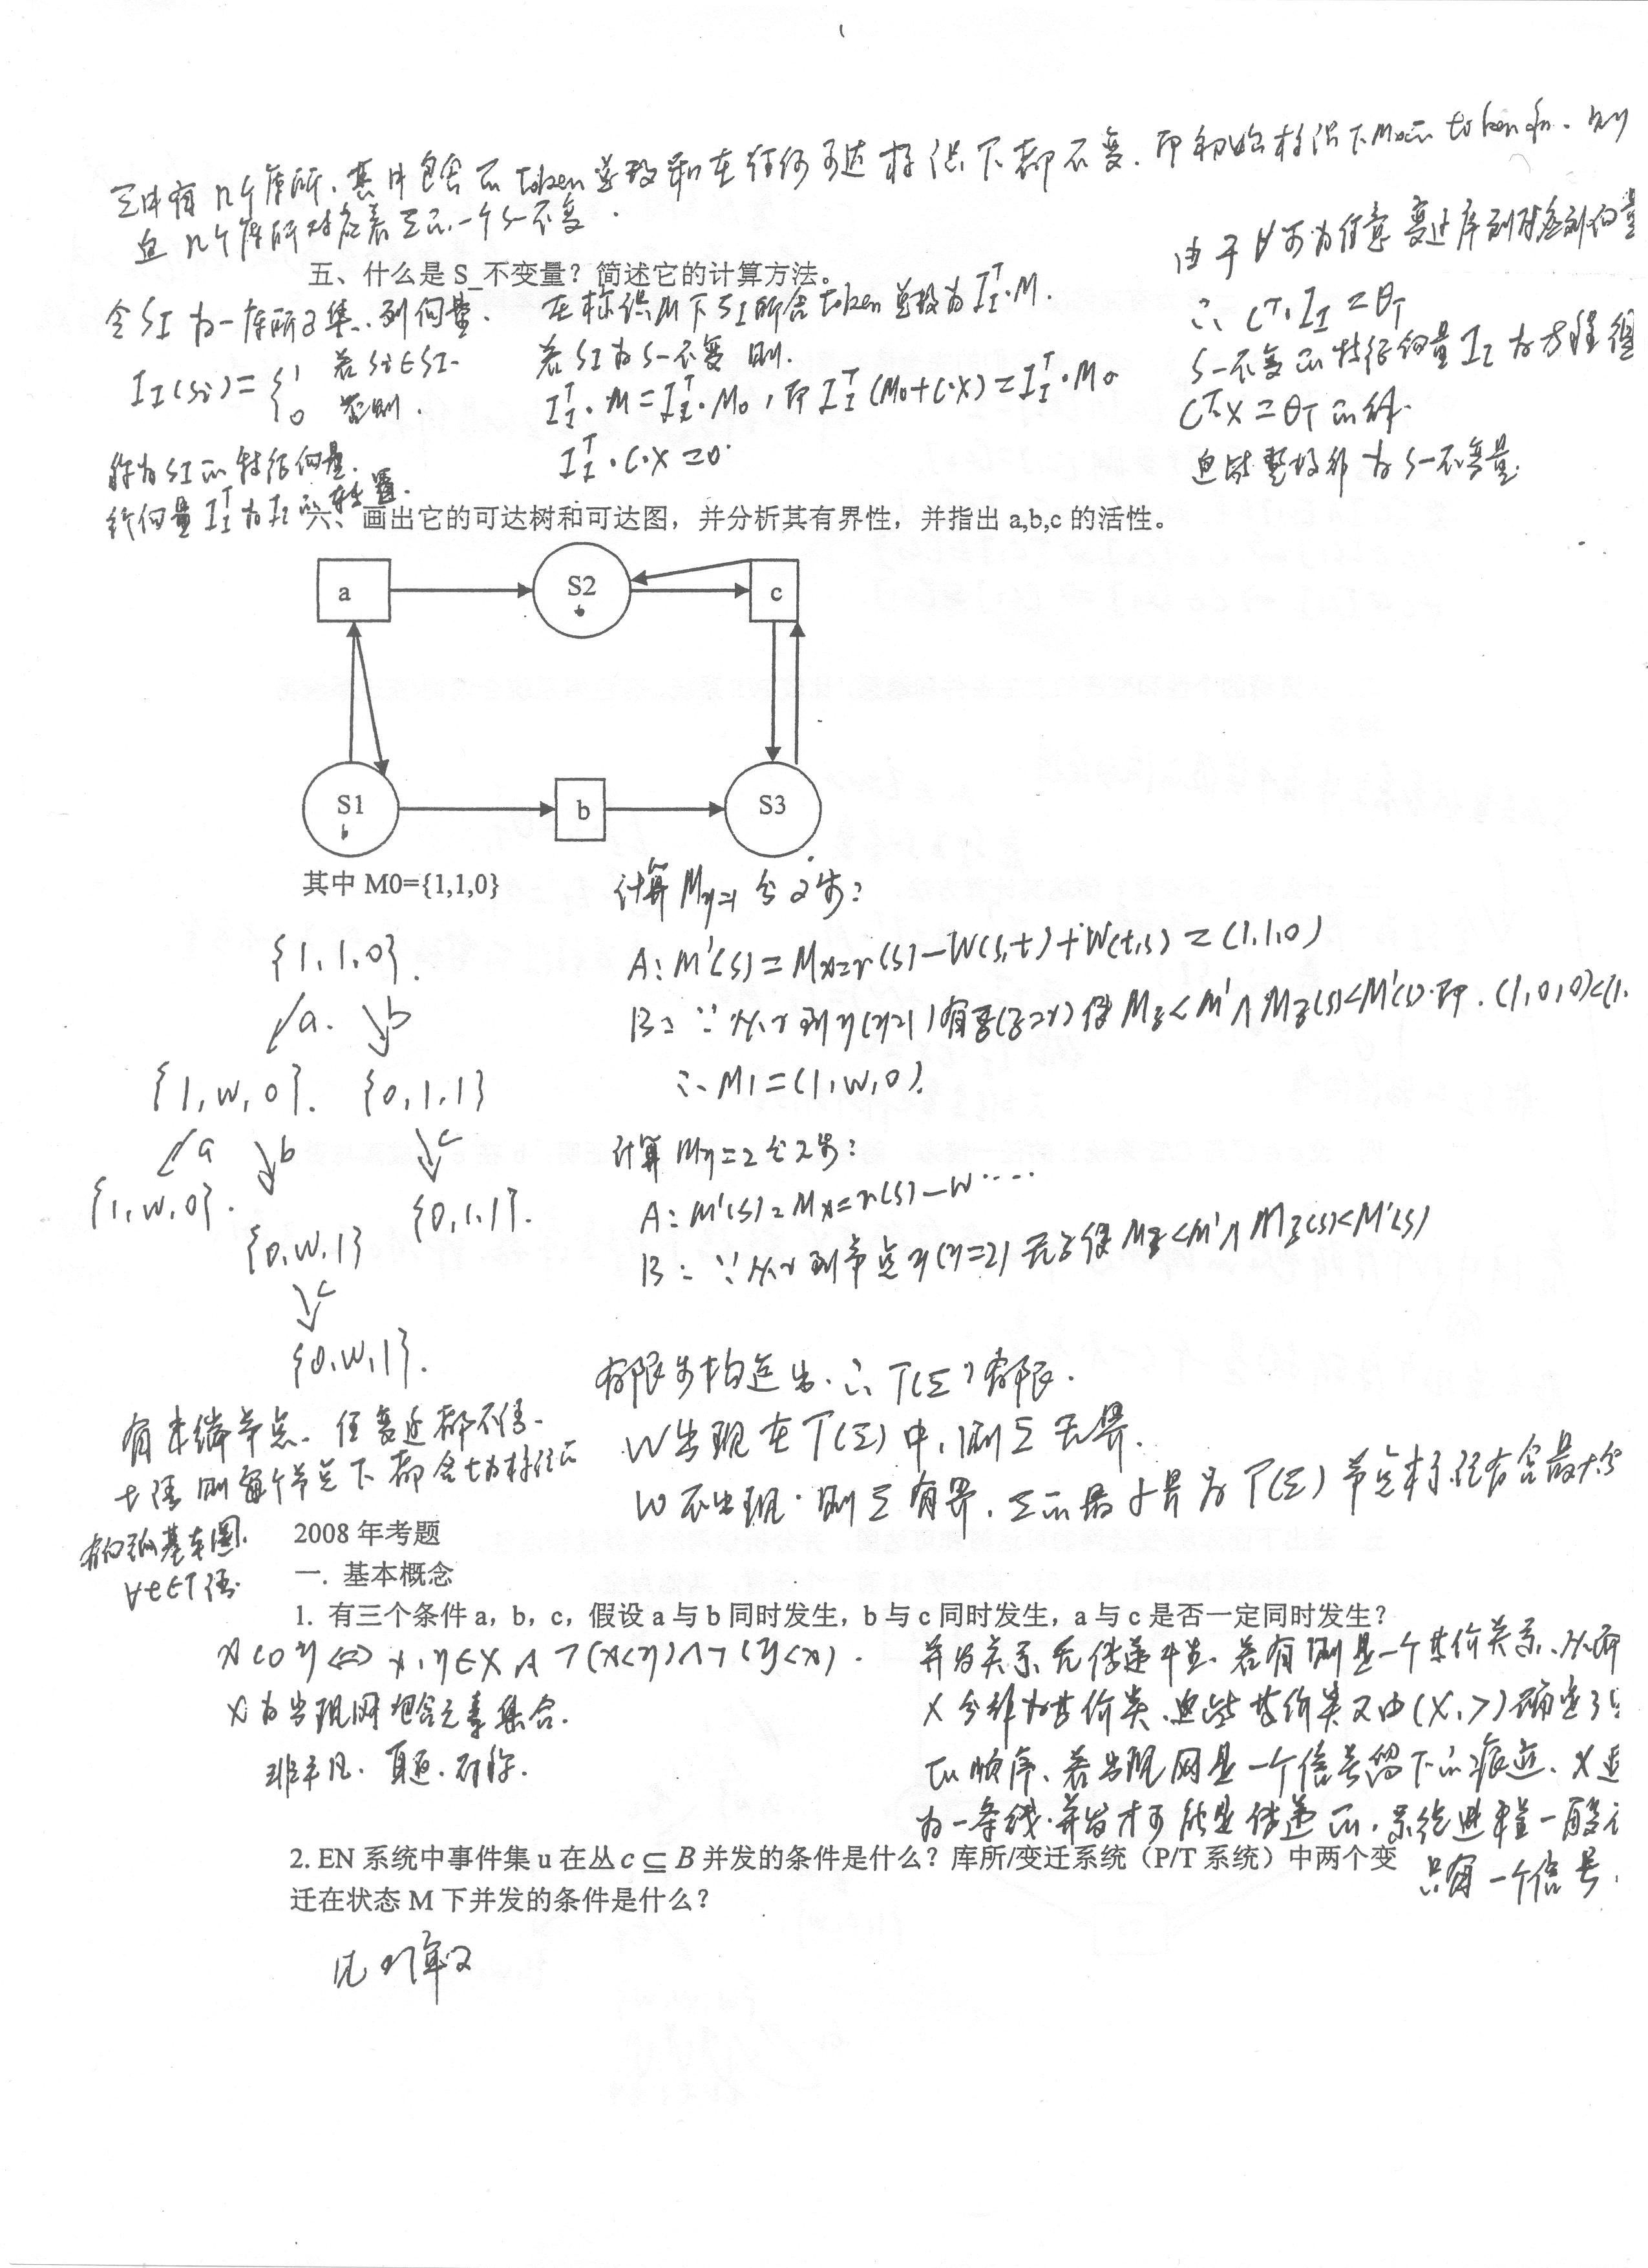 Σ中有几个库所、其中包含的token总数和在任何可达标识下都不变.即初始标识下M0的token和.则
这几个库所对应着Σ的一个S-不变.
五、什么是S_不变量？简述它的计算方法。
令SI为一库所子集.列向量.
II(Si)={1 若Si∈SI.
0 否则.
称为SI的特征向量.
行向量I_I^T为II的转置.
在标识M下SI所含token总数为I_I^T·M.
若SI为S-不变则.
I_I^T·M=I_I^T·M0,即I_I^T(M0+C·X)=I_I^T·M0
I_I^T·C·X=0.
由于X可为任意变迁序列对应列向量
∴C^T·II=θT
S-不变的特征向量II为方程组
C^T·X=θT的解.
这时整数解为S-不变量.
六、画出它的可达树和可达图，并分析其有界性，并指出 a,b,c 的活性。
a
S2
c
S1
b
S3
其中 M0={1,1,0}
{1,1,0}.
a. b
{1,w,0}. {0,1,1}
a b c
{1,w,0}. {0,w,1} {0,1,1}.
c
{0,w,1}.
计算My=1分2步:
A: M'(s)=Mx=r(s)-W(s,t)+W(t,s)=(1,1,0)
B: ∵从r到y(y=1)有z(z=r)使Mz<M'∧Mz(s)<M'(s).即.(1,0,0)<(1.
∴M1=(1,w,0).
计算My=2分2步:
A: M'(s)=Mx=r(s)-W....
B: ∵从r到节点y(y=2)无z使Mz<M'∧Mz(s)<M'(s)
有限步构造出.∴T(Σ)有限.
W出现在T(Σ)中,则Σ无界.
W不出现.则Σ有界.Σ的最小界为T(Σ)节点标识右含最大分
有末端节点.任变迁都不活.
t活则每个节点下都含t为标记的
有向弧基本圈.
∀t∈T活.
2008 年考题
一. 基本概念
1. 有三个条件 a，b，c，假设 a 与 b 同时发生，b 与 c 同时发生，a 与 c 是否一定同时发生？
x co y⇔x,y∈X∧¬(x<y)∧¬(y<x).
X为出现网包含元素集合.
非平凡.自返.对称.
并发关系无传递性.若有则是一个等价关系.从而
X分解为等价类.这些等价类又由(X,>)确定了
的顺序.若出现网是一个信号留下的痕迹.X
为一条线.并发才可能是传递的.系统进程一般
只有一个信号.
2. EN 系统中事件集 u 在丛 c⊆B 并发的条件是什么？库所/变迁系统（P/T 系统）中两个变
迁在状态 M 下并发的条件是什么？